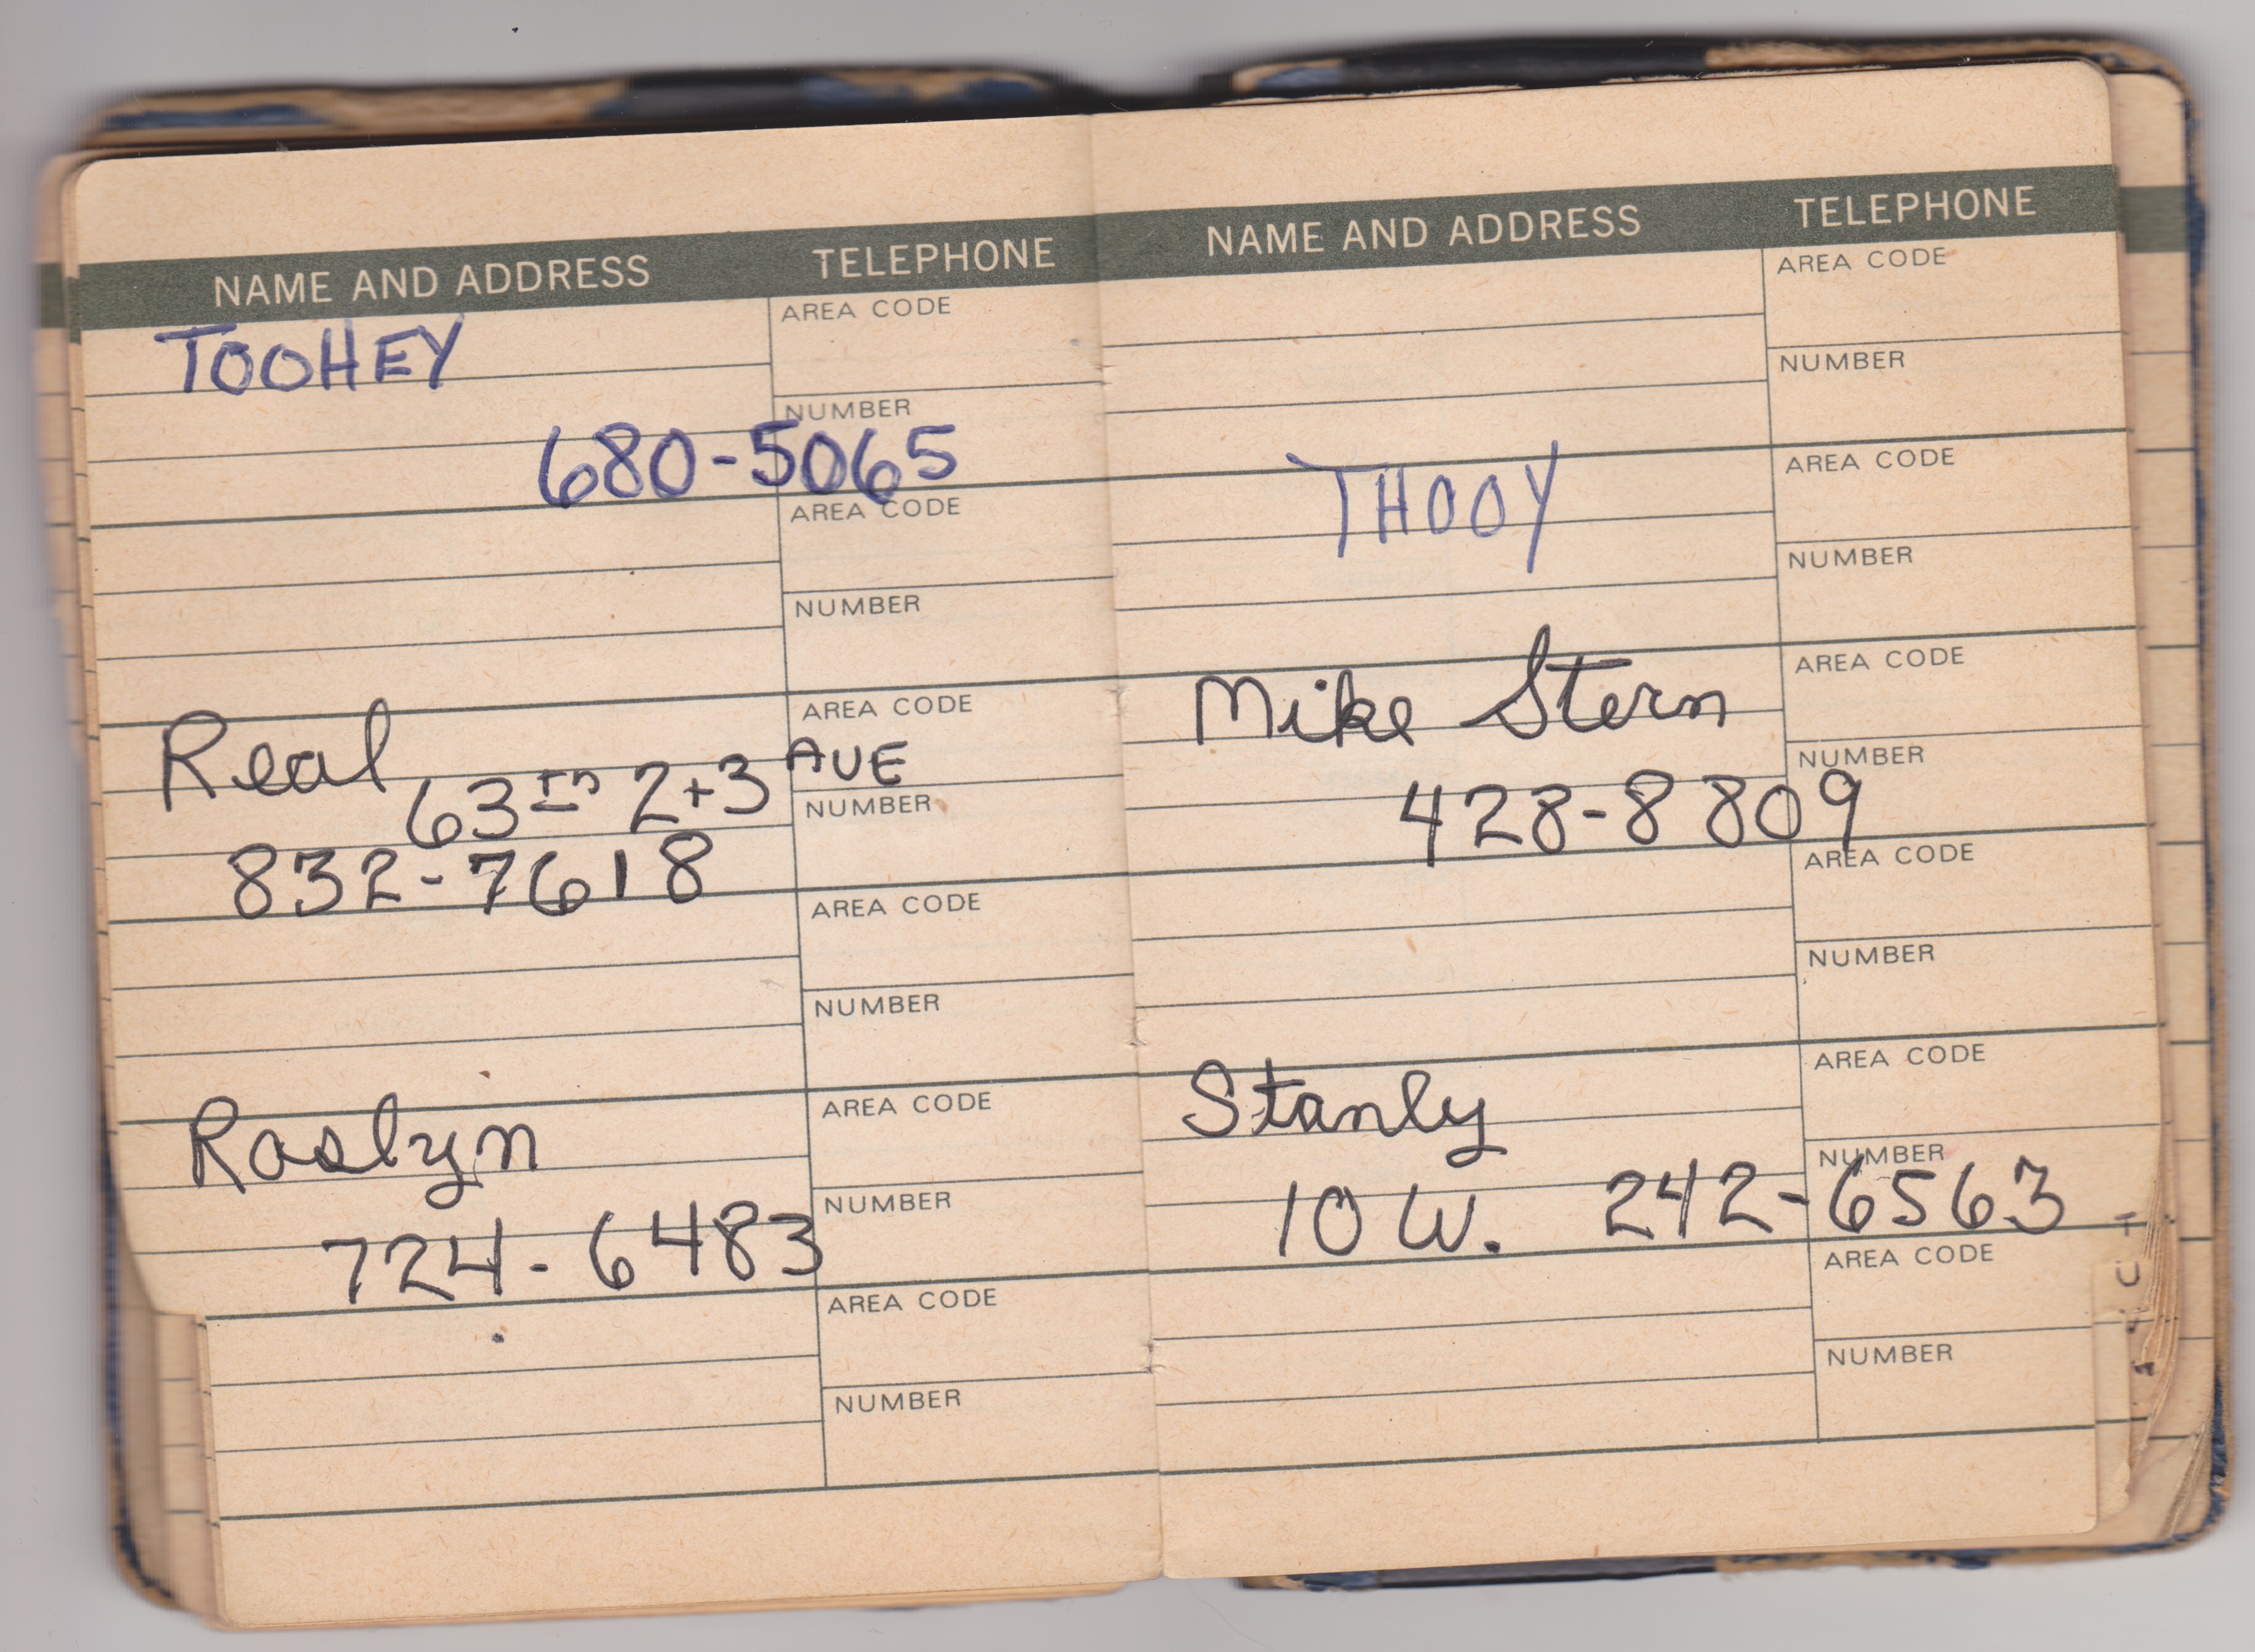 NAME AND ADDRESS TELEPHONE
AREA CODE
TOOHEY
NUMBER
680-5065
AREA CODE
NUMBER
AREA CODE
Real
63TH 2+3 AVE
NUMBER
832-7618
AREA CODE
NUMBER
AREA CODE
Roslyn
NUMBER
724-6483
AREA CODE
NUMBER
NAME AND ADDRESS TELEPHONE
AREA CODE
NUMBER
AREA CODE
THOOY
NUMBER
AREA CODE
Mike Stern
NUMBER
428-8809
AREA CODE
NUMBER
AREA CODE
Stanly
NUMBER
10 W. 242-6563
AREA CODE
NUMBER